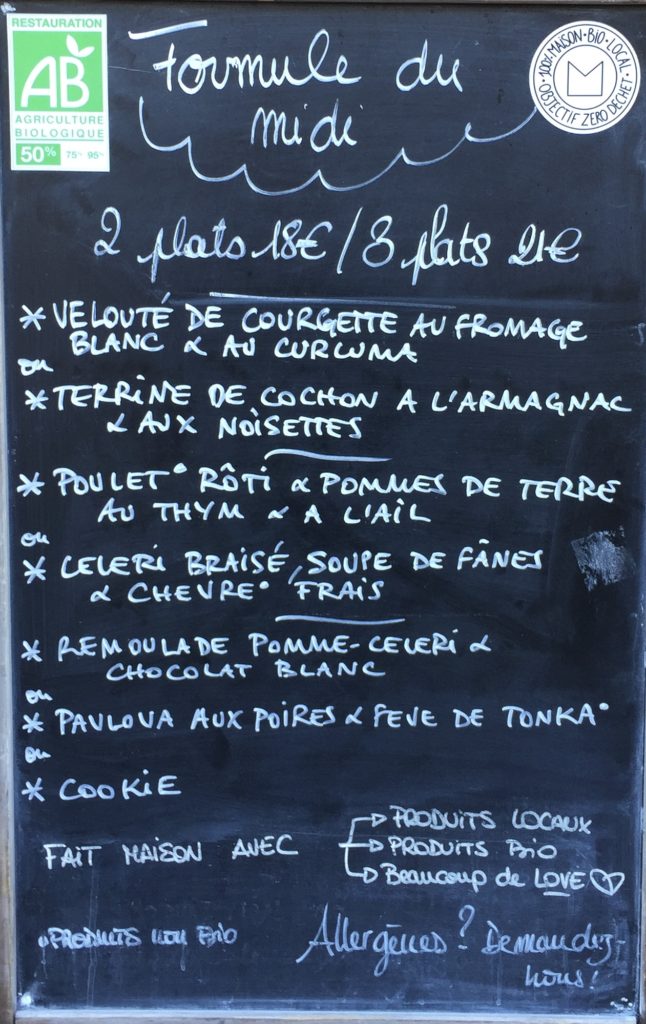 RESTAURATION
AB
AGRICULTURE
BIOLOGIQUE
50% 75% 95%
100% MAISON • BIO • LOCAL • OBJECTIF ZERO DECHET •
Formule du
midi
2 plats 18€ / 3 plats 21€
* VELOUTÉ DE COURGETTE AU FROMAGE
BLANC & AU CURCUMA
ou
* TERRINE DE COCHON A L'ARMAGNAC
& AUX NOISETTES
* POULET° RÔTI & POMMES DE TERRE
AU THYM & A L'AIL
ou
* CELERI BRAISÉ, SOUPE DE FÂNES
& CHEVRE° FRAIS
* REMOULADE POMME-CELERI &
CHOCOLAT BLANC
ou
* PAVLOVA AUX POIRES & FEVE DE TONKA°
ou
* COOKIE
FAIT MAISON AVEC
PRODUITS LOCAUX
PRODUITS BIO
Beaucoup de LOVE
°PRODUITS NON BIO
Allergènes ? Demandez-
nous !